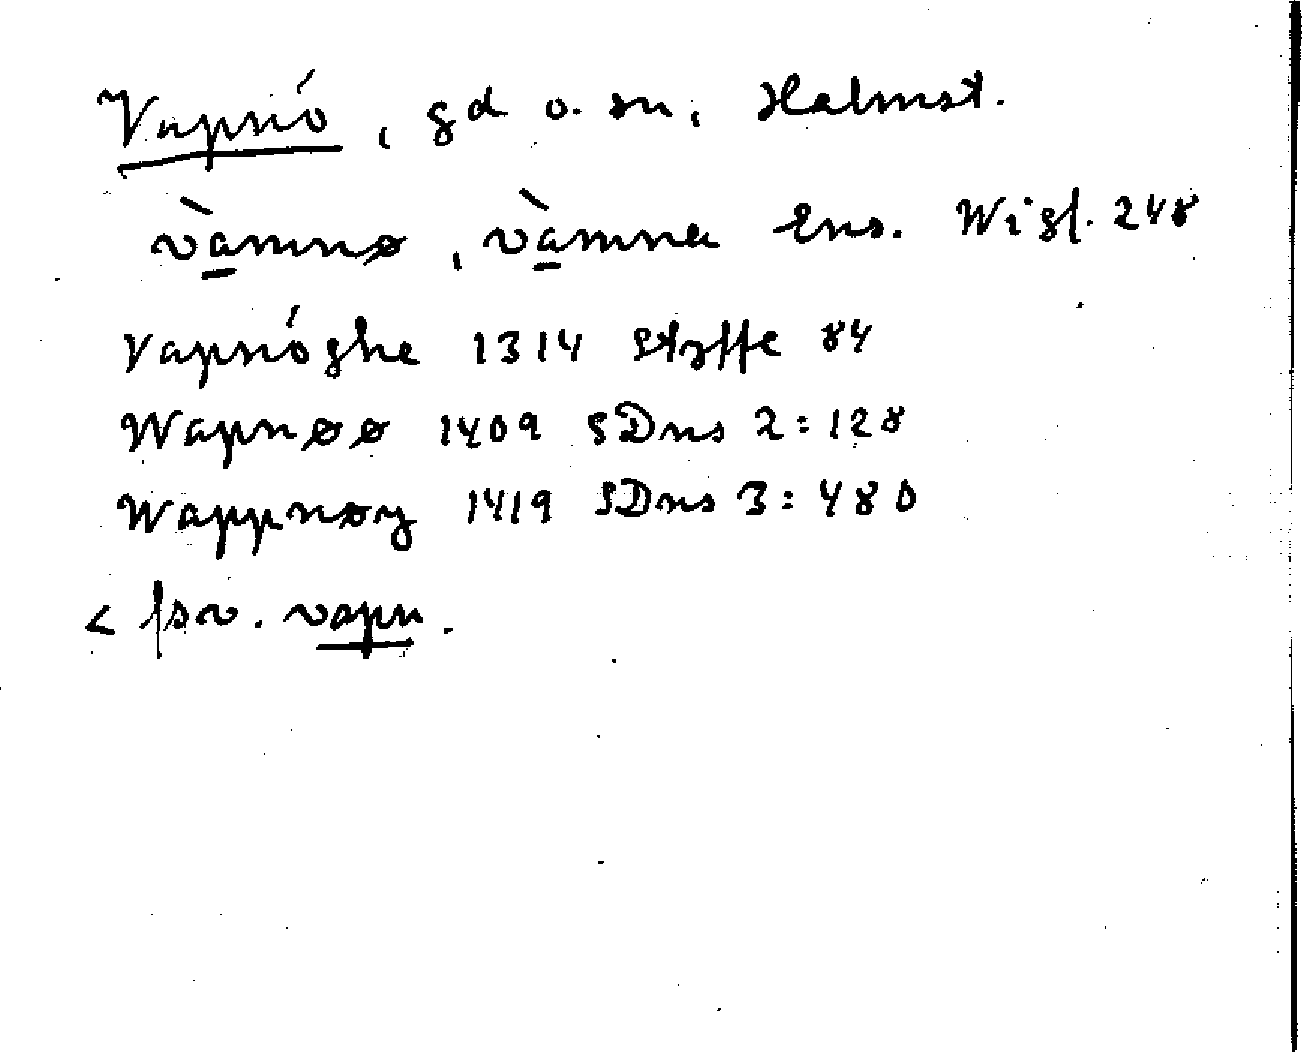 Vapnó, gd o. sn, Halmst.
vàmnø, vàmna Ens. Wigf. 248
Vapnóghe 1314 Styffe 84
Wapnøø 1409 SDns 2:128
Wappnøy 1419 SDns 3:480
< fsv. vapn.